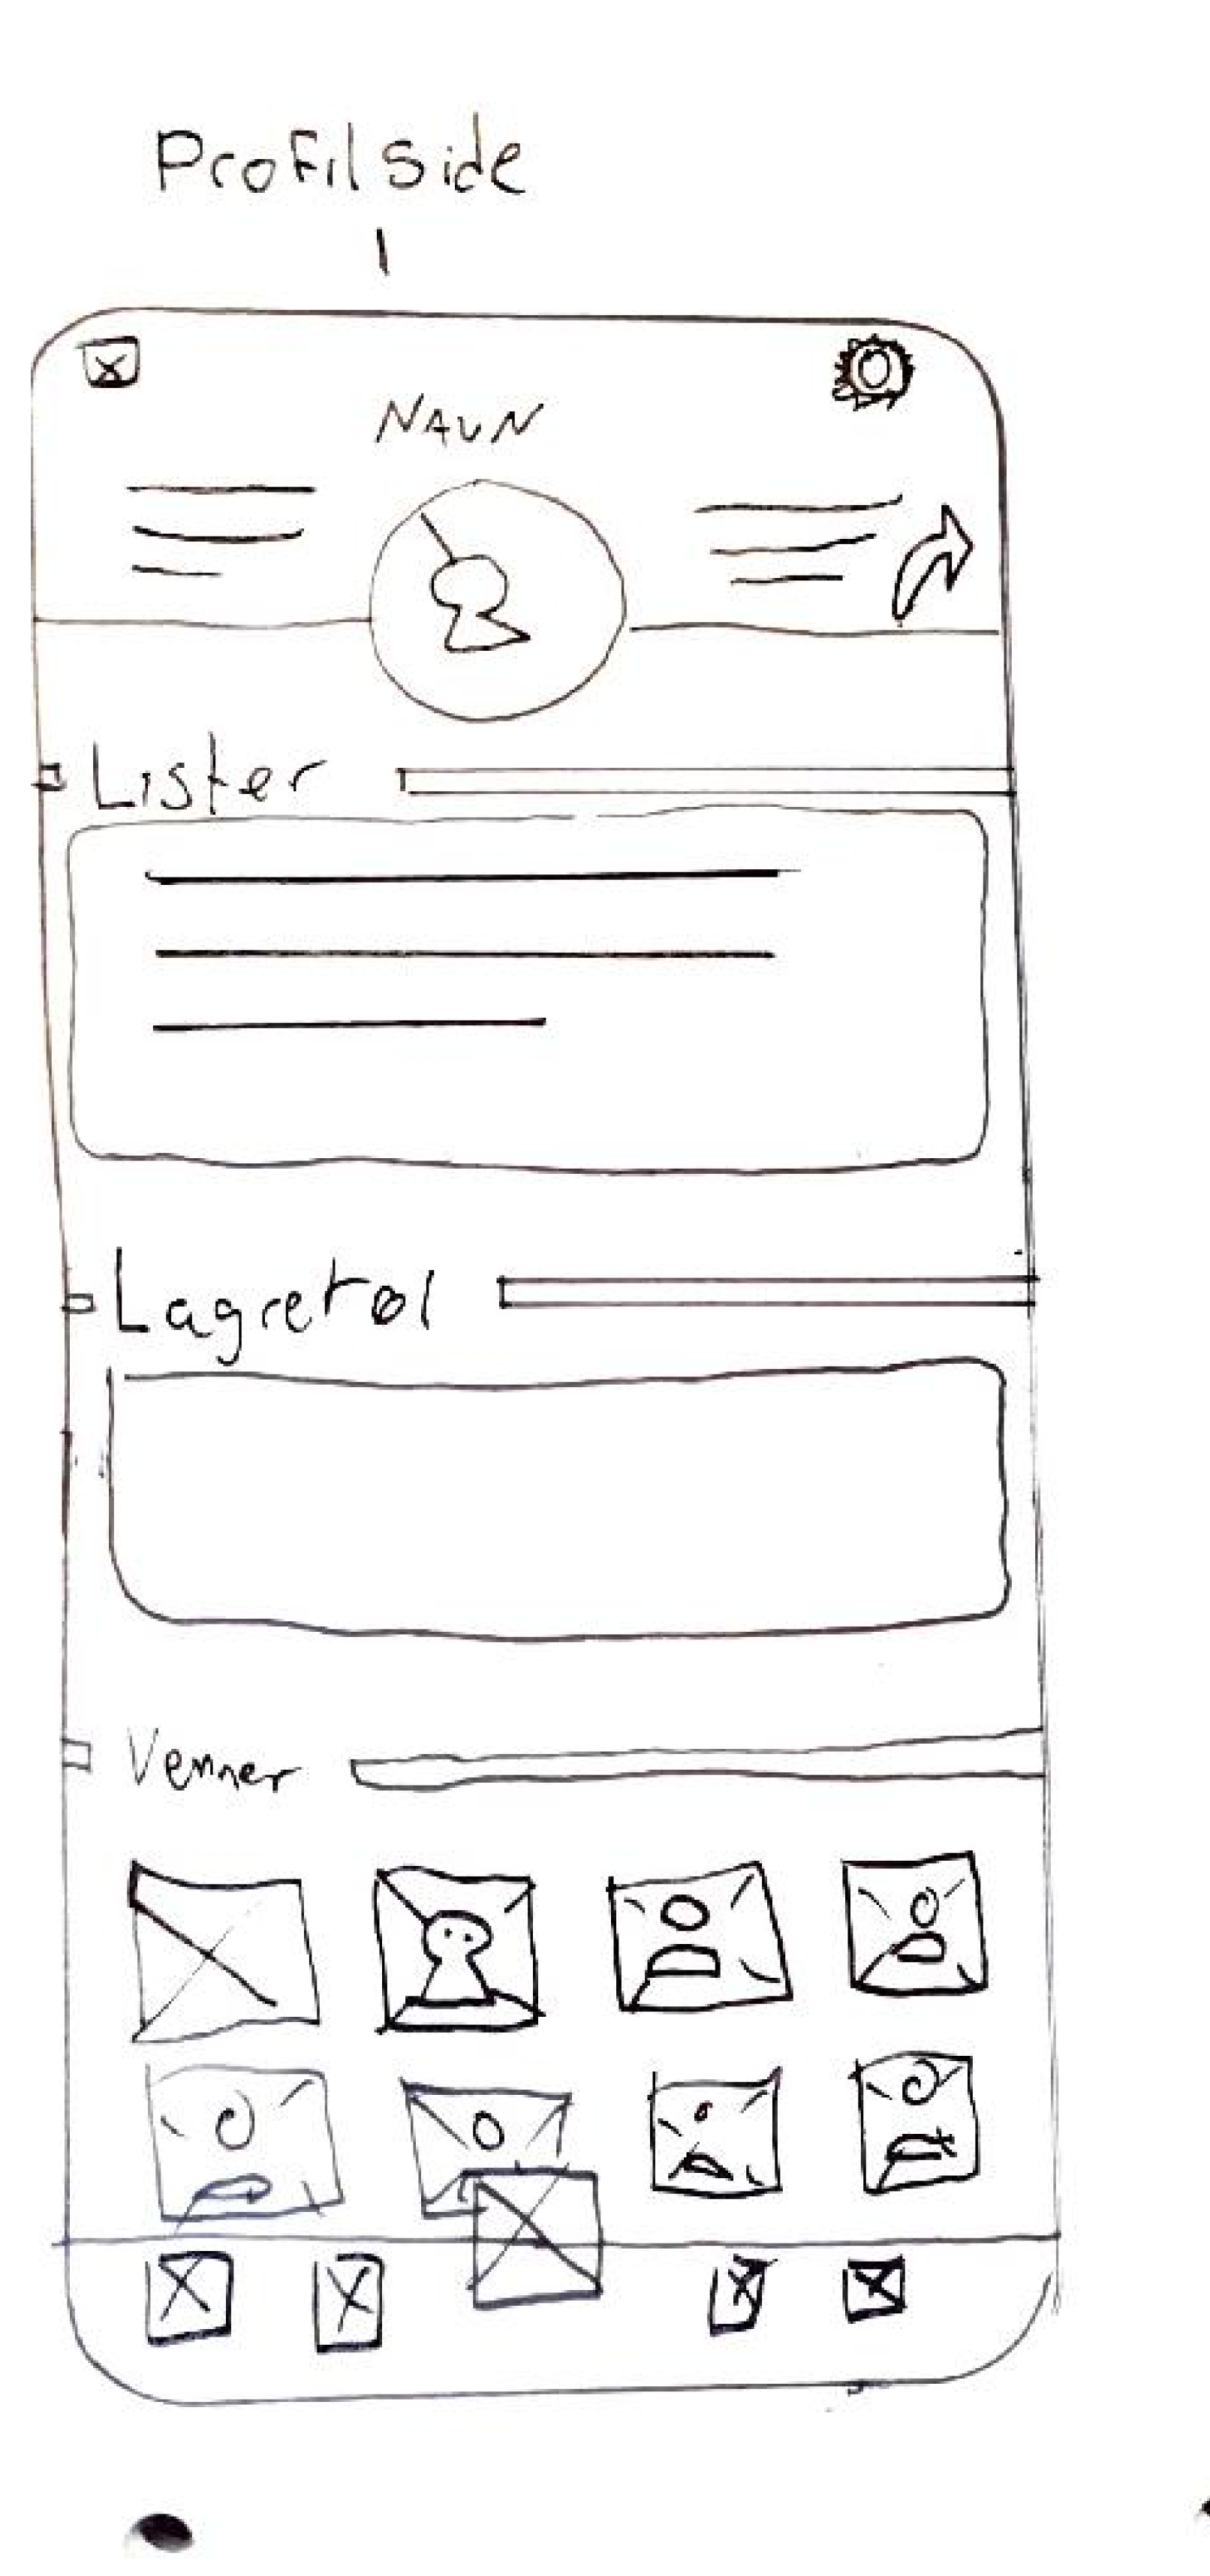 Profilside
NAVN
Lister
Lagret øl
Venner